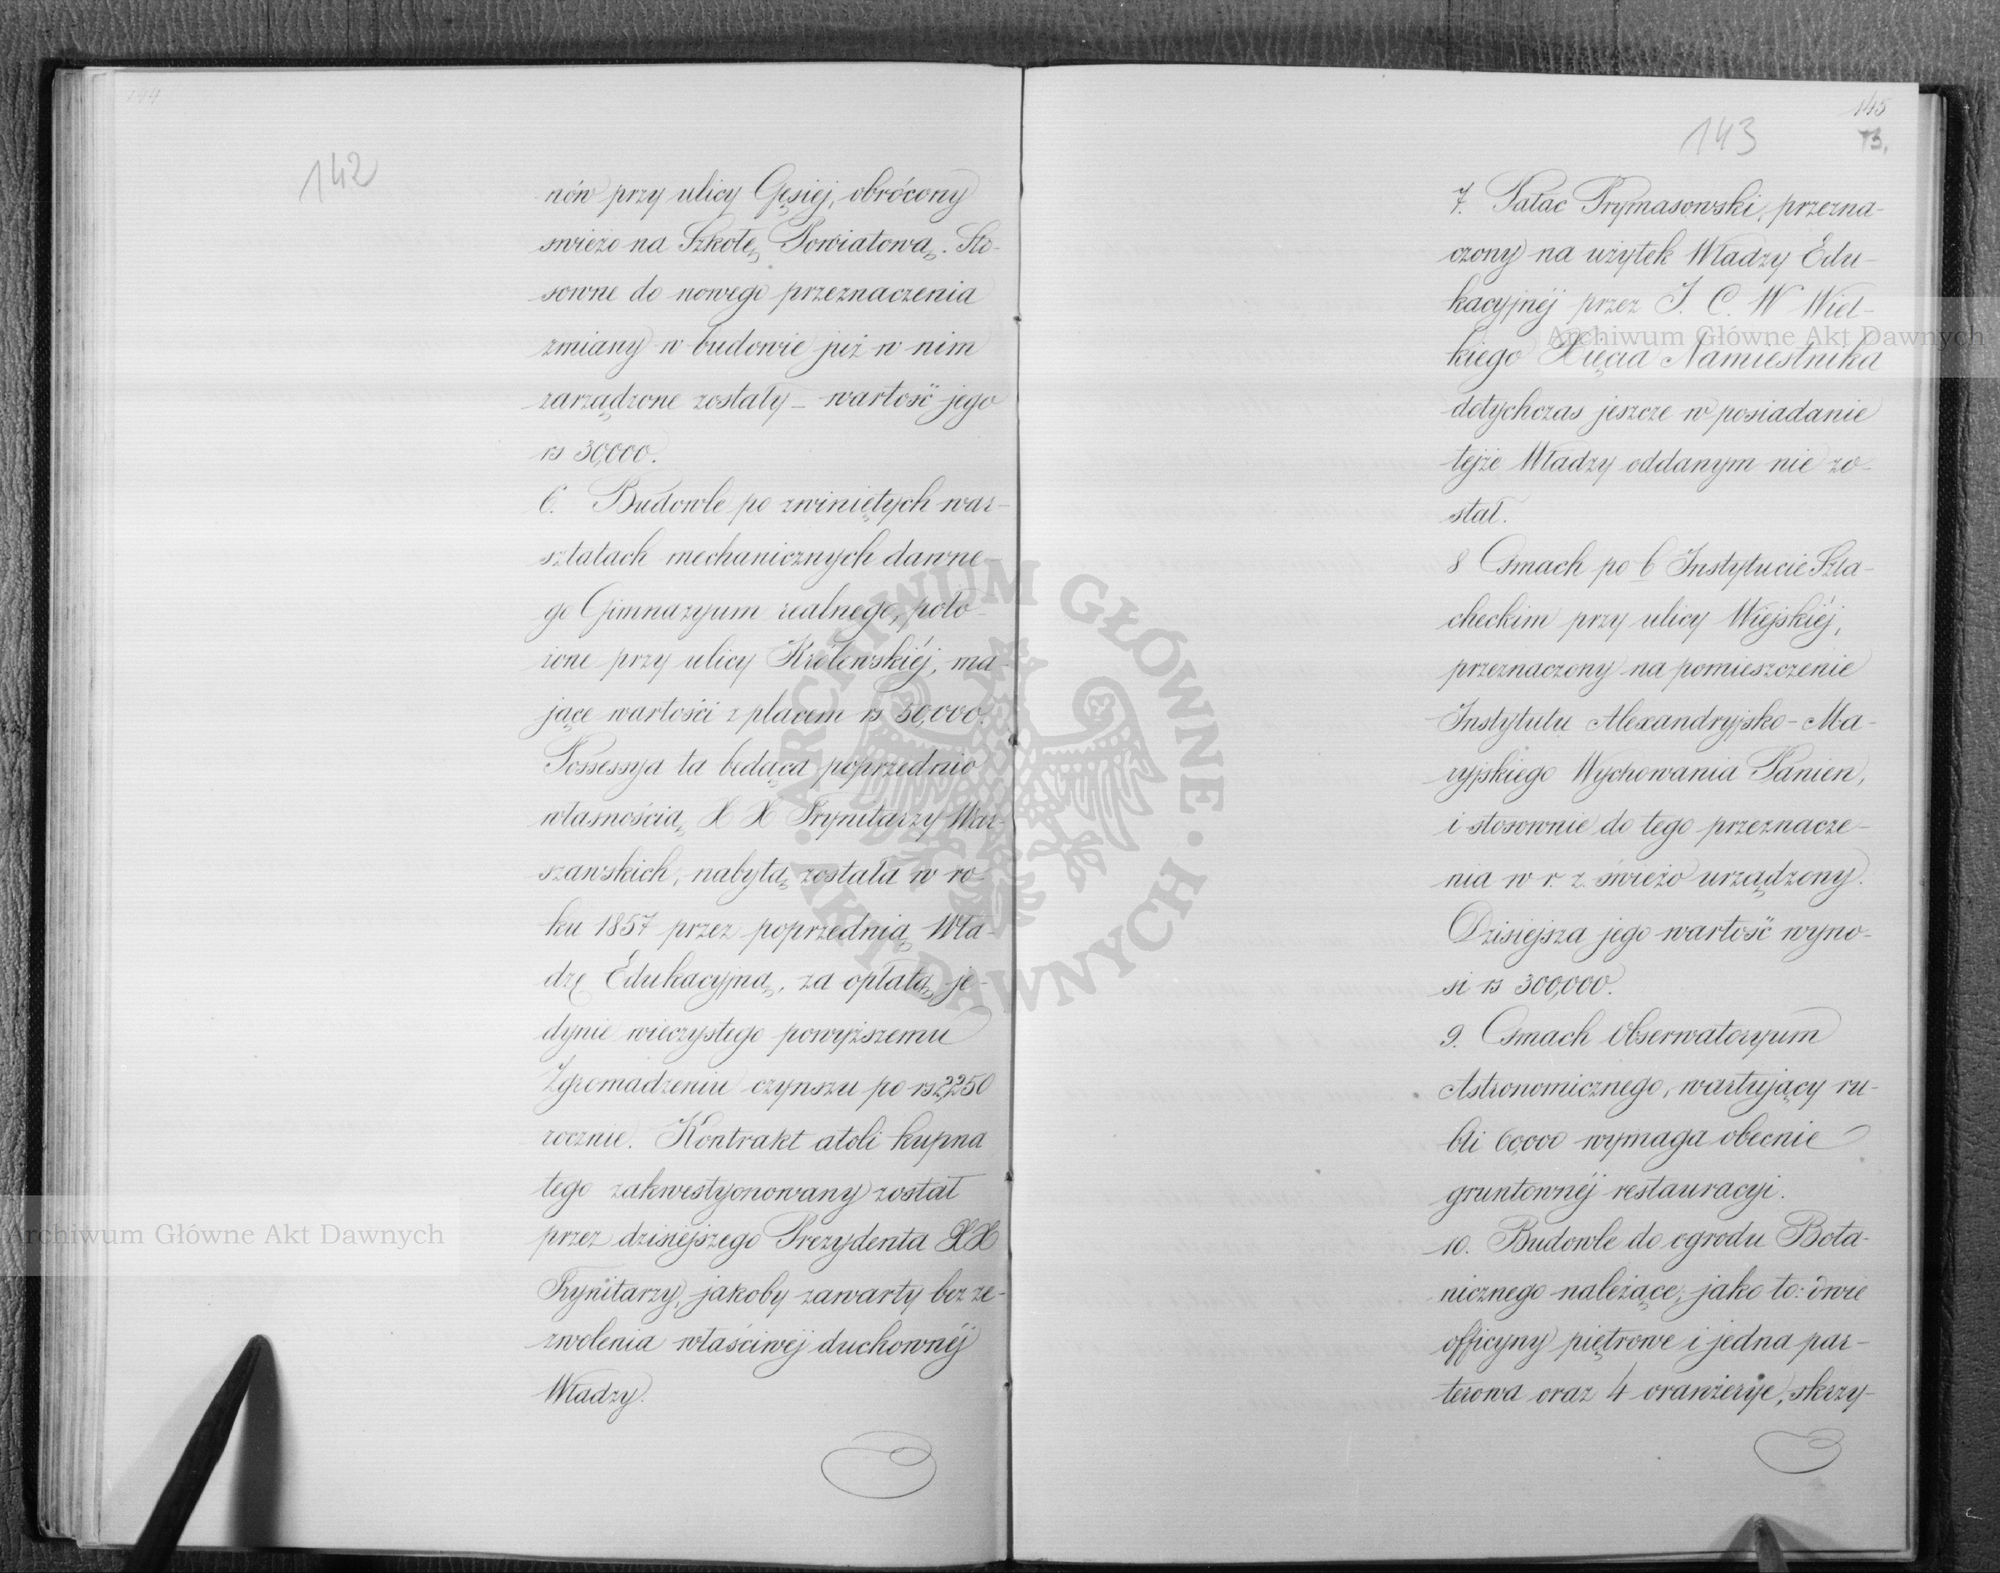 144
142
nów przy ulicy Gęsiej, obrócony
swieżo na Szkołę Powiatową. Sto-
sowne do nowego przeznaczenia
zmiany w budowie już w nim
zarządzone zostały – wartość jego
rs 30,000.
6. Budowle po zwiniętych war-
sztatach mechanicznych dawne-
go Gimnazyum realnego, poło-
żone przy ulicy Królewskiéj, ma-
jące wartości z placem rs 30,000.
Possessya ta będąca poprzednio
własnością X X Trynitarzy War-
szawskich, nabytą została w ro-
ku 1857 przez poprzednią Wła-
dzę Edukacyjną, za opłatą je-
dynie wieczystego powyższemu
Zgromadzeniu czynszu po rs 2,250
rocznie. Kontrakt atoli kupna
tego zakwestyonowany został
przez dzisiejszego Prezydenta XX
Trynitarzy, jakoby zawarty bez ze-
zwolenia właściwej duchownéj
Władzy.
145
143
73.
7. Pałac Prymasowski, przezna-
czony na użytek Władzy Edu-
kacyjnéj przez J. C. W Wiel-
kiego Xięcia Namiestnika
dotychczas jeszcze w posiadanie
tejże Władzy oddanym nie zo-
stał.
8 Gmach po b Instytucie Szla-
checkim przy ulicy Wiejskiéj,
przeznaczony na pomieszczenie
Instytutu Alexandryjsko-Ma-
ryjskiego Wychowania Panien,
i stosownie do tego przeznacze-
nia w r. z. świeżo urządzony.
Dzisiejsza jego wartość wyno-
si rs 300,000.
9. Gmach Obserwatoryum
Astronomicznego, wartujący ru-
bli 60,000 wymaga obecnie
gruntownéj restauracyi.
10. Budowle do ogrodu Bota-
nicznego należące, jako to: dwie
officyny piętrowe i jedna par-
terowa oraz 4 oranżerye, skrzy-
Archiwum Główne Akt Dawnych
Archiwum Główne Akt Dawnych
ARCHIWUM GŁÓWNE · AKT DAWNYCH ·